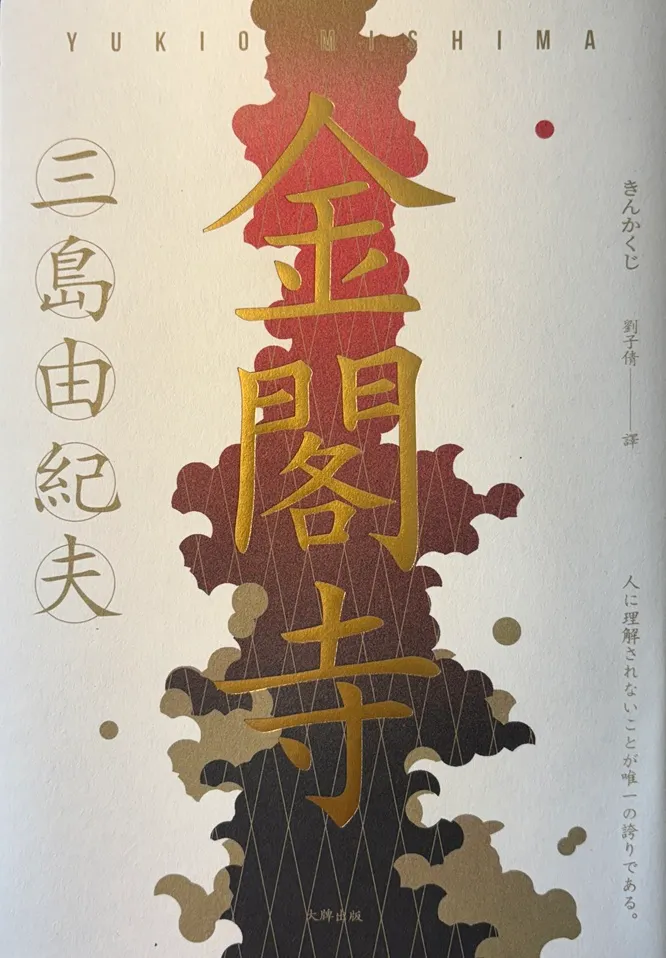 YUKIO MISHIMA
金閣寺
三島由紀夫
きんかくじ
劉子倩——譯
人に理解されないことが唯一の誇りである。
大牌出版